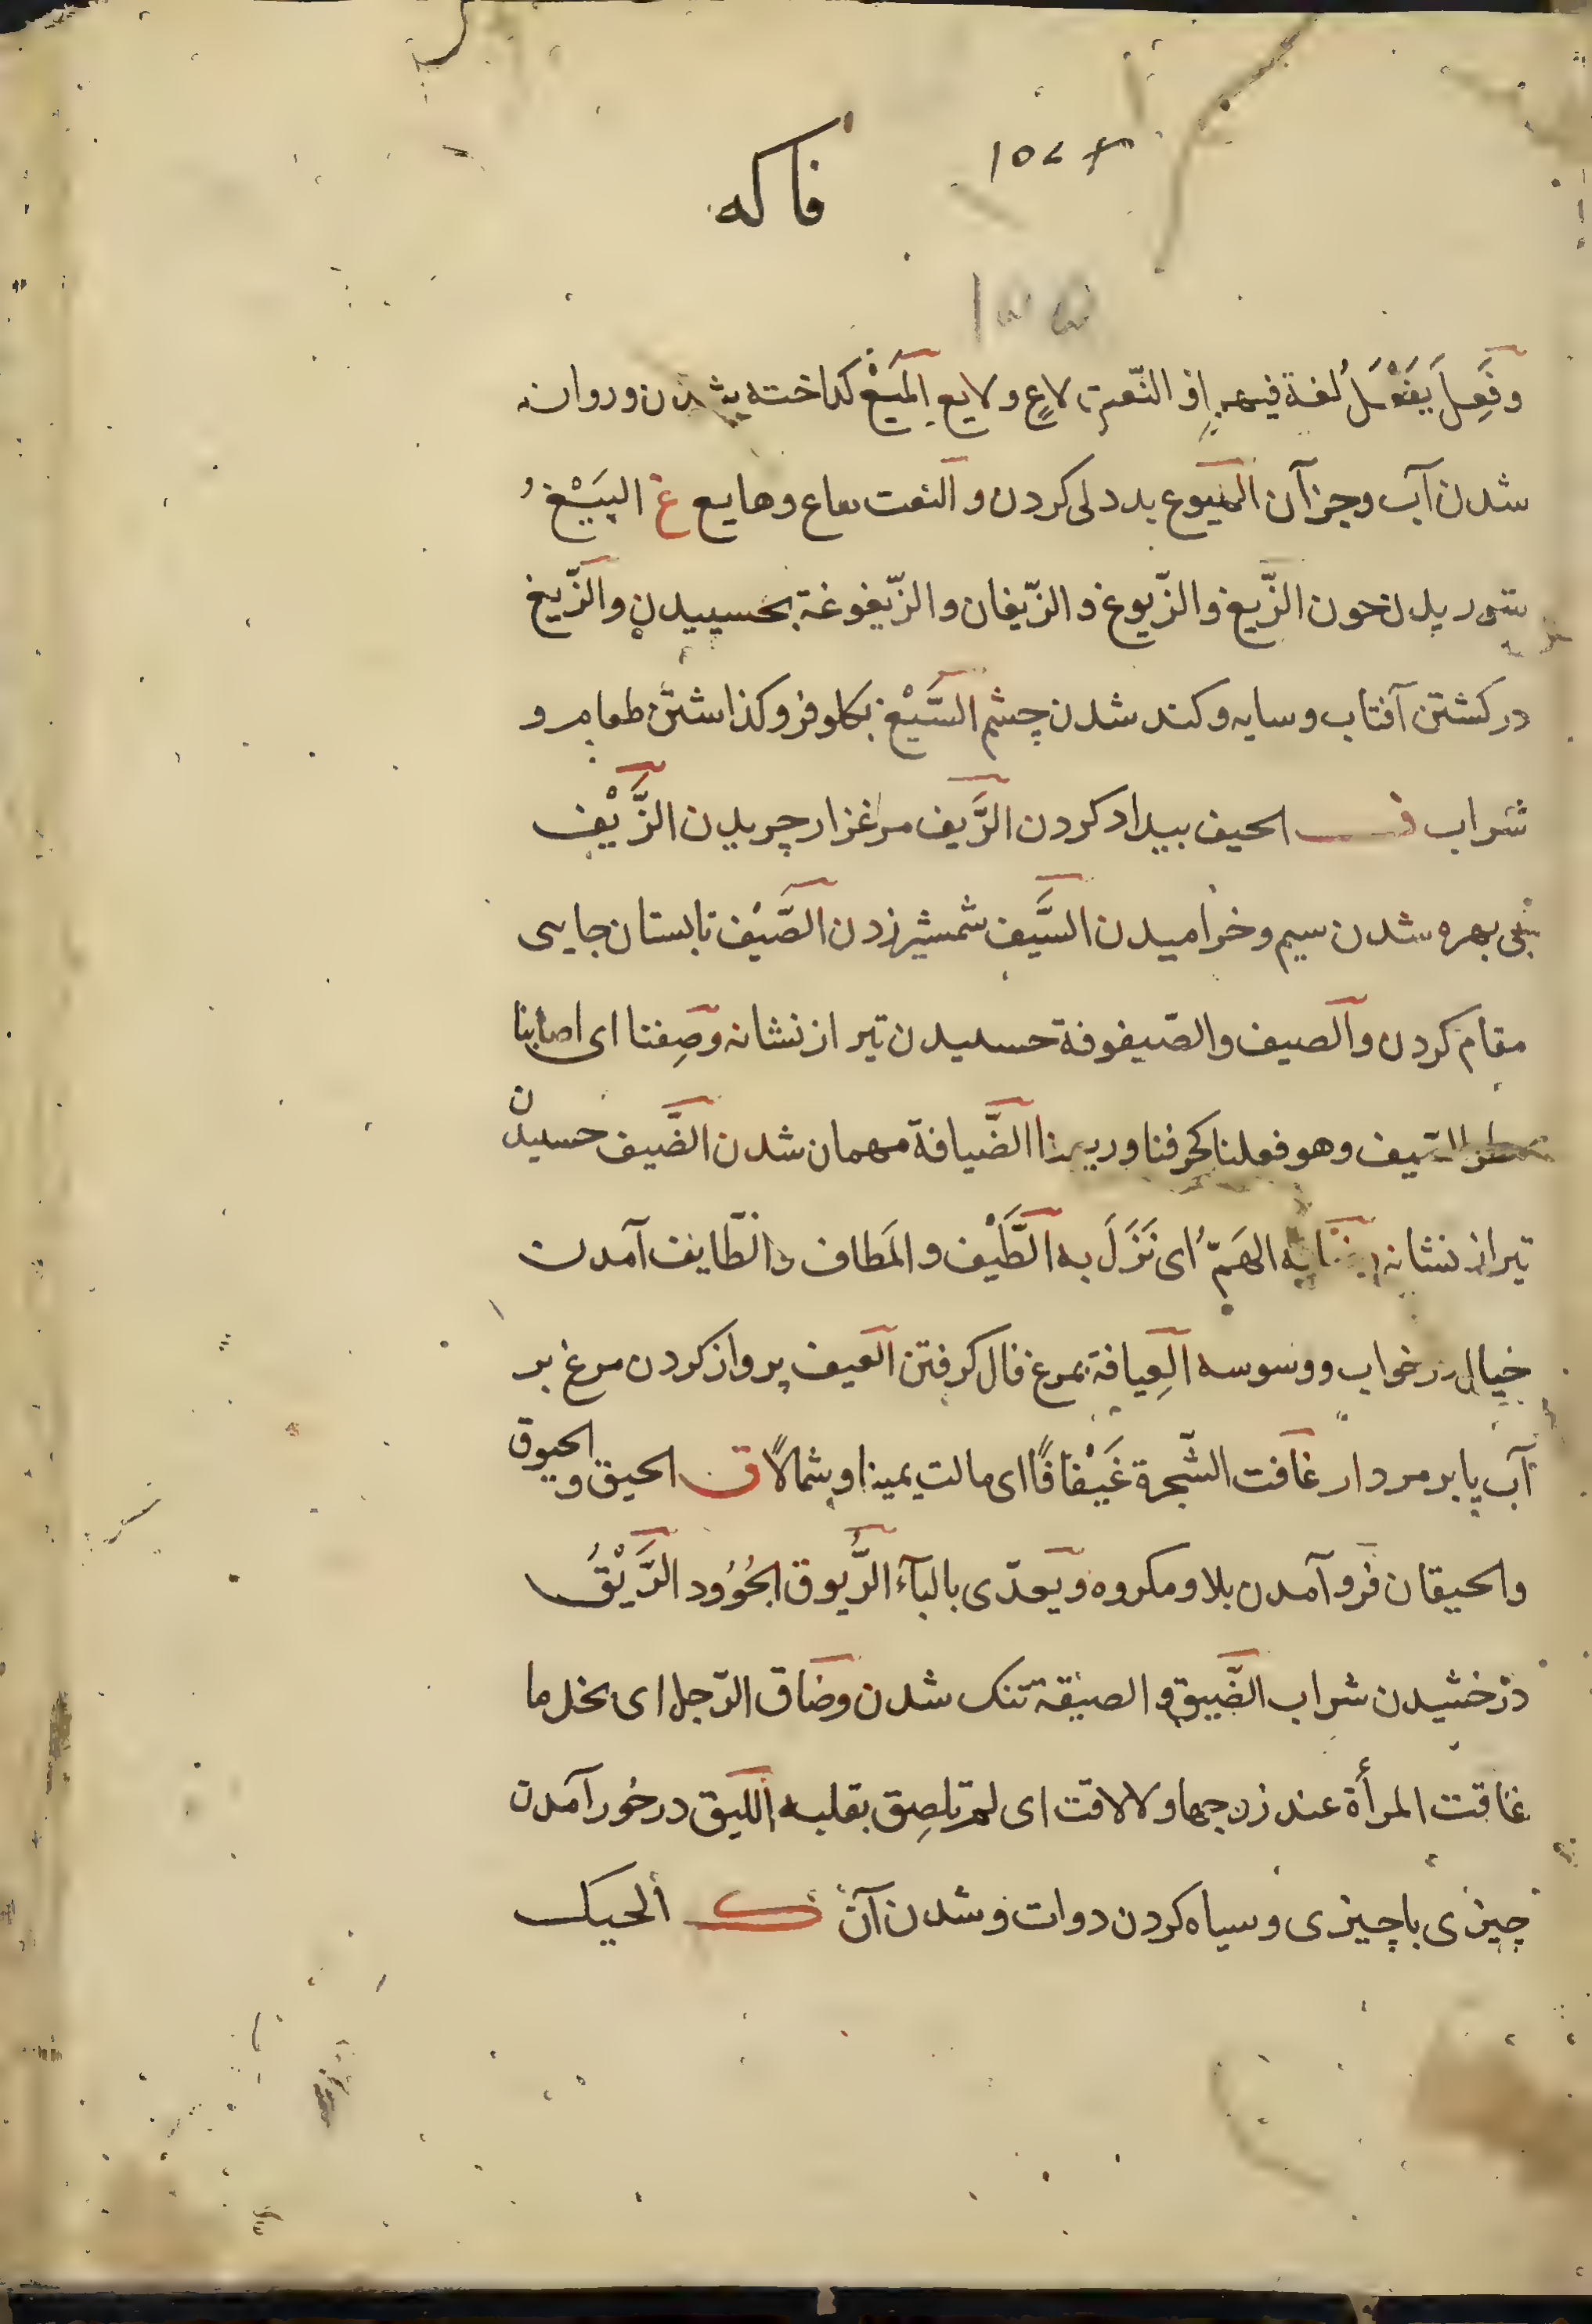 ۱۵۷۴
فاکه
۱۵۵
وفَعِلَ يَفعَلُ لُغة فيهما والنّعت لاعٍ ولايع المَيْع کداخته شدن وروان
شدن آب وجز آن الهيوع بددلی کردن والنعت هاع وهايع غ البَيْغُ
شوريدن خون الزَّيغ والزّيوغ والزّيغان والزّيغوغة بحسبيدن والزَّيغ
در کشتن آفتاب وسايه وکند شدن چشم السَّيْغ بکلو فرو کذاشتن طعام و
شراب ف الحيف بيداد کردن الرَّيف مرغزار چريدن الزَّيْف
نبی بهره شدن سيم وخراميدن السَّيف شمشير زدن الصَّيْف تابستان جايی
مقام کردن والصيف والصّيفوفة حسبيدن تير از نشانه وصِفنا ای اصابنا
مطر الصّيف وهو فعلنا کخرفنا وربعنا الضَّيافة مهمان شدن الضَّيف حسبيدن
تير از نشانه الهَمّ ُای نَزَلَ به الطَّيْف والمَطاف والطّايف آمدن
خيال در خواب ووسوسه العِيافة بمرغ فال کرفتن العيف پرواز کردن مرغ بر
آب يا بر مردار غافت الشّجرة غَيْفافًا ای مالت يمينا وشمالًا ق الحيق والحيوق
والحيقان فرو آمدن بلا ومکروه ويعدّی بالبآء الرُّيوق الجُؤُود الرَّيْقُ
درخشيدن شراب الضَّيق والضيقة تنک شدن وضاق الرّجل ای بخل ما
عاقت المرأة عند زوجها ولا لاقت ای لم تلصِق بقلبه الليق در خور آمدن
چيزی با چيزی وسياه کردن دوات وشدن آن ک ألحيک